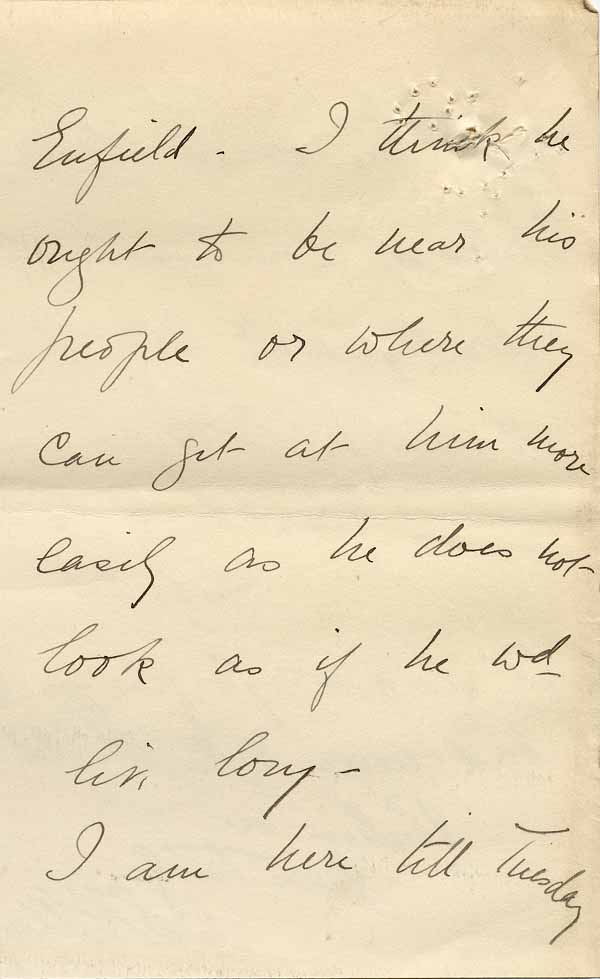 Enfield - I think he
ought to be near his
people or where they
can get at him more
easily as he does not
look as if he wd
live long -
I am here till Tuesday